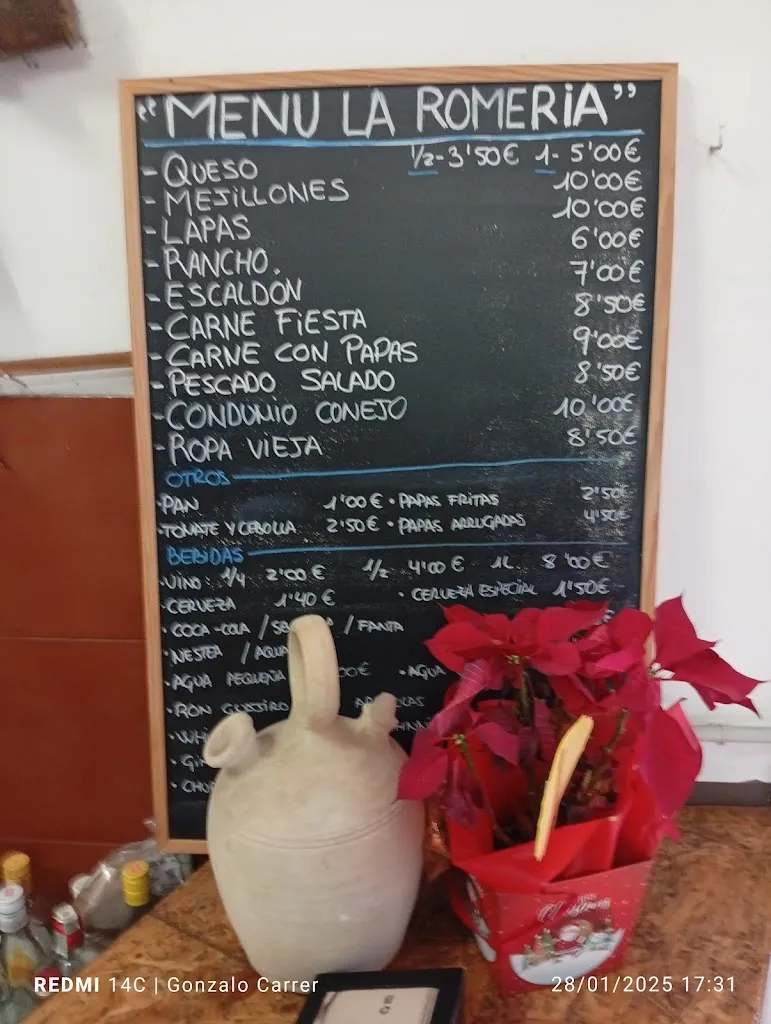 "MENU LA ROMERiA"
- QUESO 1/2-3'50€ 1- 5'00€
- MEJILLONES 10'00€
- LAPAS 10'00€
- RANCHO. 6'00€
- ESCALDÓN 7'00€
- CARNE FiESTA 8'50€
- CARNE CON PAPAS 9'00€
- PESCADO SALADO 8'50€
- CONDUMIO CONEJO 10'00€
- ROPA VIEJA 8'50€
OTROS
·PAN 1'00€ ·PAPAS FRITAS 2'50€
·TOMATE Y CEBOLLA 2'50€ ·PAPAS ARRUGADAS 4'50€
BEBIDAS
·VINO: 1/4 2'00€ 1/2 4'00€ 1L 8'00€
·CERVEZA 1'40€ ·CERVEZA ESPECIAL 1'50€
·COCA-COLA / / FANTA
·NESTEA /
·AGUA PEQUEÑA ·AGUA
·RON
REDMI 14C | Gonzalo Carrer
28/01/2025 17:31